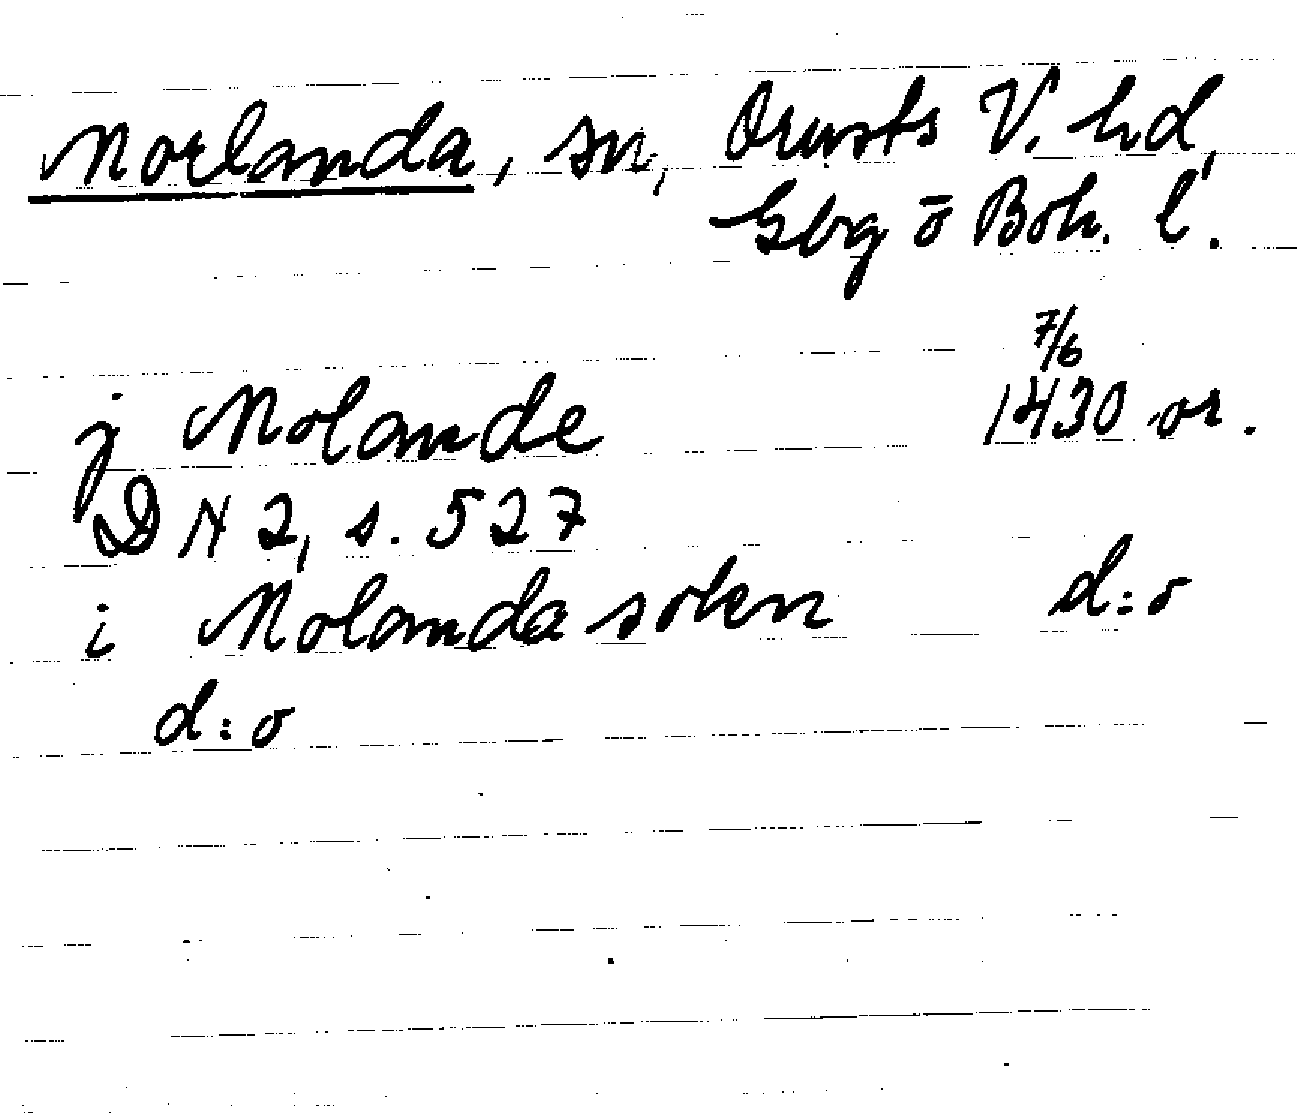 Morlanda, sn, Orusts V. hd,
Gbg ō Boh. l.
7/6
j Molande 1430 or.
DN 2, s. 527
i Molanda sokn d:o
d:o